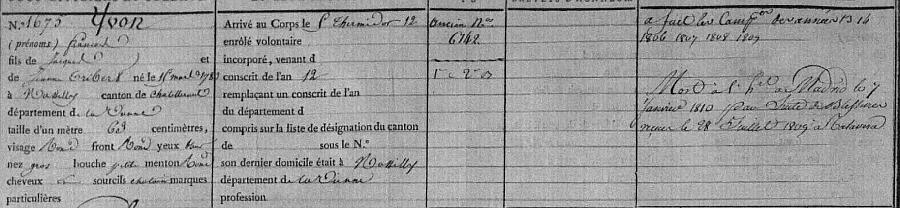 N.° 1673 Yvon
(prénoms) François
fils de Jacques et
de Jeanne Tribert né le 15 mars 178
à NaVilly canton de chatellerault
département de la vienne
taille d'un mètre 63 centimètres,
visage Rond front Rond yeux
nez gros bouche petite menton Rond
cheveux sourcils chatain marques
particulières
Arrivé au Corps le 1er thermidor 12
enrôlé volontaire
incorporé, venant d
conscrit de l'an 12
remplaçant un conscrit de l'an
du département d
compris sur la liste de désignation du canton
de sous le N.°
son dernier domicile était à NaVilly
département de la Vienne
profession.
ancien No
6742
1er 2
a fait les Camp.on des années 13 14
1806 1807 1808 1809
Mort à l'h.al de Madrid le 7
Janvier 1810 par Suite de Blessures
le 28 Juillet 1809 a Talavera